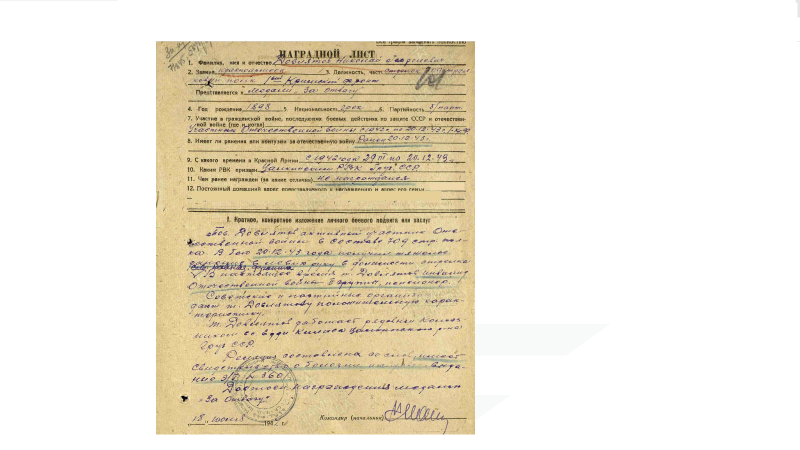 НАГРАДНОЙ ЛИСТ
1. Фамилия, имя и отчество Довлятов Николай
2. Звание красноармеец 3. Должность, часть стрелок
фронт
Представляется к Медали "За отвагу"
4. Год рождения 1898 5. Национальность грек 6. Партийность б/парт
7. Участие в гражданской войне, последующих боевых действиях по защите СССР и отечествен-
ной войне (где и когда)
Участник Отечественной войны с 1942 г. по 20-12-43 г.
8. Имеет ли ранения или контузии за отечественную войну Ранен 20-12-43 г.
9. С какого времени в Красной Армии с 1942 года 29 III по 20.12.43 г.
10. Каким РВК призван Цалкинским РВК Груз. ССР
11. Чем ранее награжден (за какие отличия) не награждался
12. Постоянный домашний адрес представляемого к награждению и адрес его семьи
I. Краткое, конкретное изложение личного боевого подвига или заслуг
Тов. Довлятов активный участник Оте-
чественной войны в составе 409 стр. пол-
ка. В бою 20-12-43 года получил тяжелое
ранение в левую руку в должности стрелка
В настоящее время т. Довлятов инвалид
Отечественной войны группы, пенсионер.
Советские и партийные органы
дают т. Довлятову положительную харак-
теристику.
Т. Довлятов работает рядовым колхоз-
ником
Груз ССР.
составлена
Свидетельство о болезни
860
Достоин награждения медалью
"За отвагу"
18 " июня 194 г.
Командир (начальник)